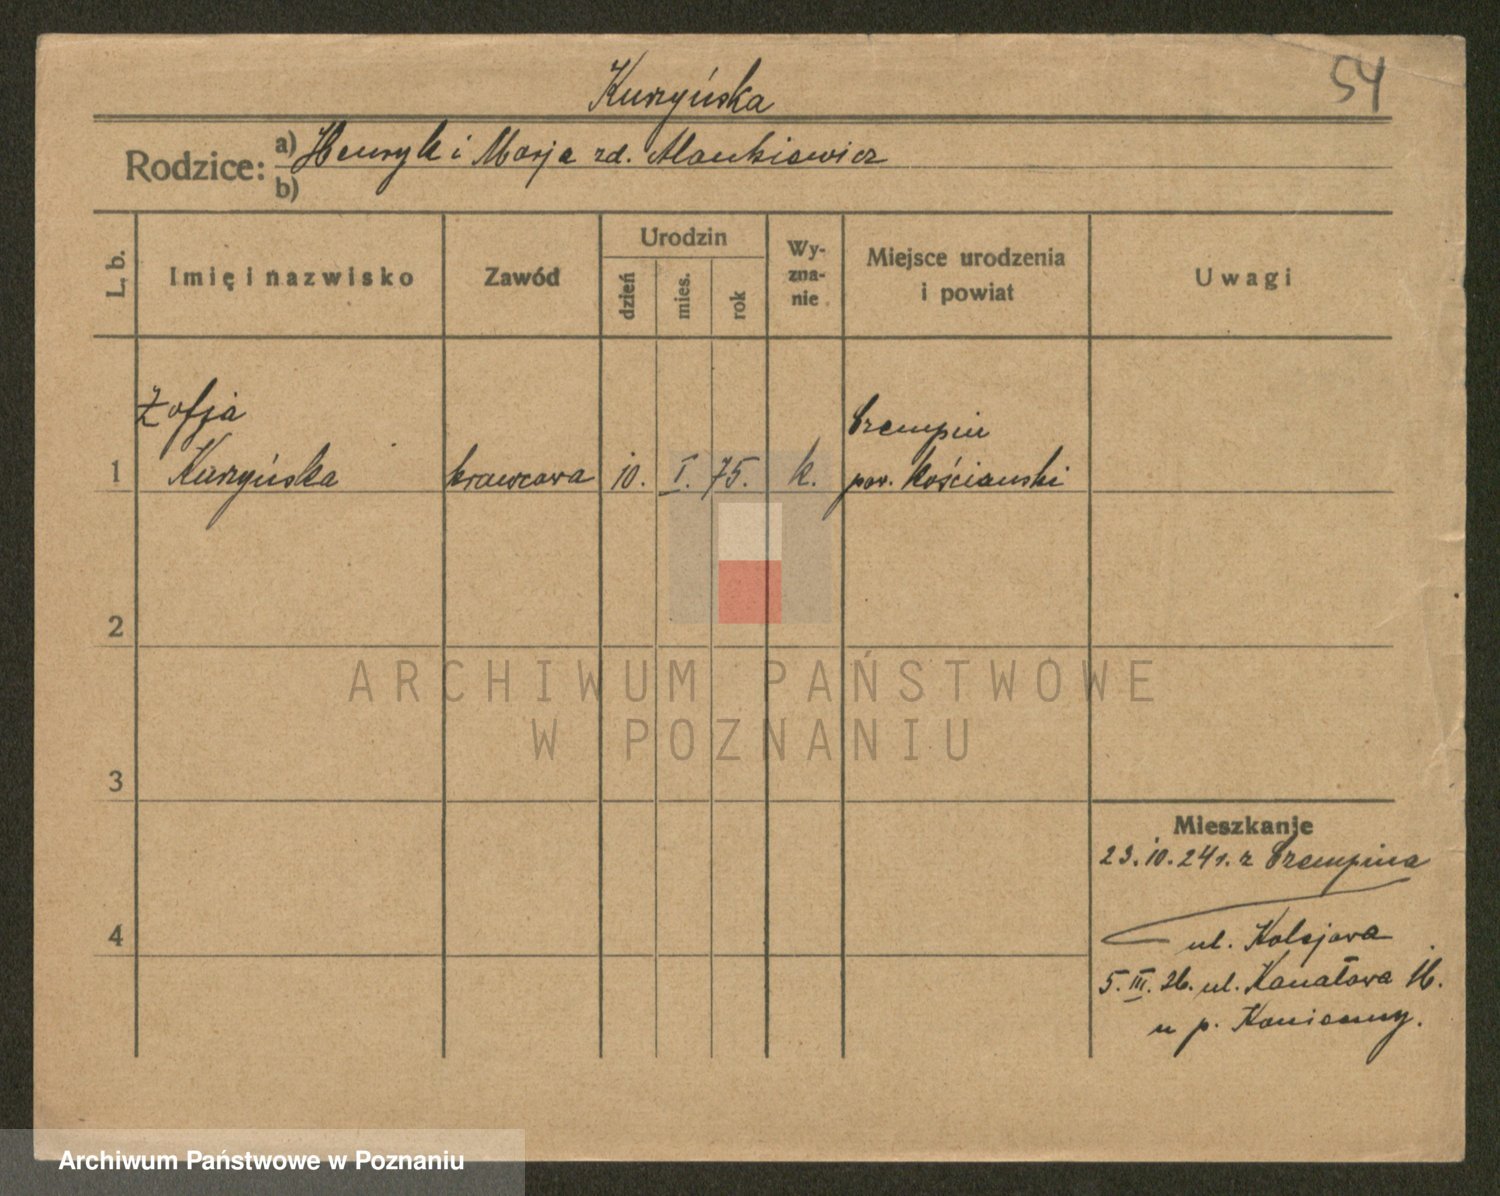 54
Kurzyńska
Rodzice: a) Henryk i Marja zd. Mankiewicz
b)
L. b.
Imię i nazwisko
Zawód
Urodzin
dzień
mies.
rok
Wy-
zna-
nie
Miejsce urodzenia
i powiat
Uwagi
Zofja
Czempin
1 Kurzyńska krawcowa 10. I. 75. k. pow. Kościański
2
3
4
ARCHIWUM PAŃSTWOWE
W POZNANIU
Mieszkanie
23.10.24 r. z Czempina
ul. Kolejowa
5. III. 26. ul. Kanałowa 16.
u p.
Archiwum Państwowe w Poznaniu